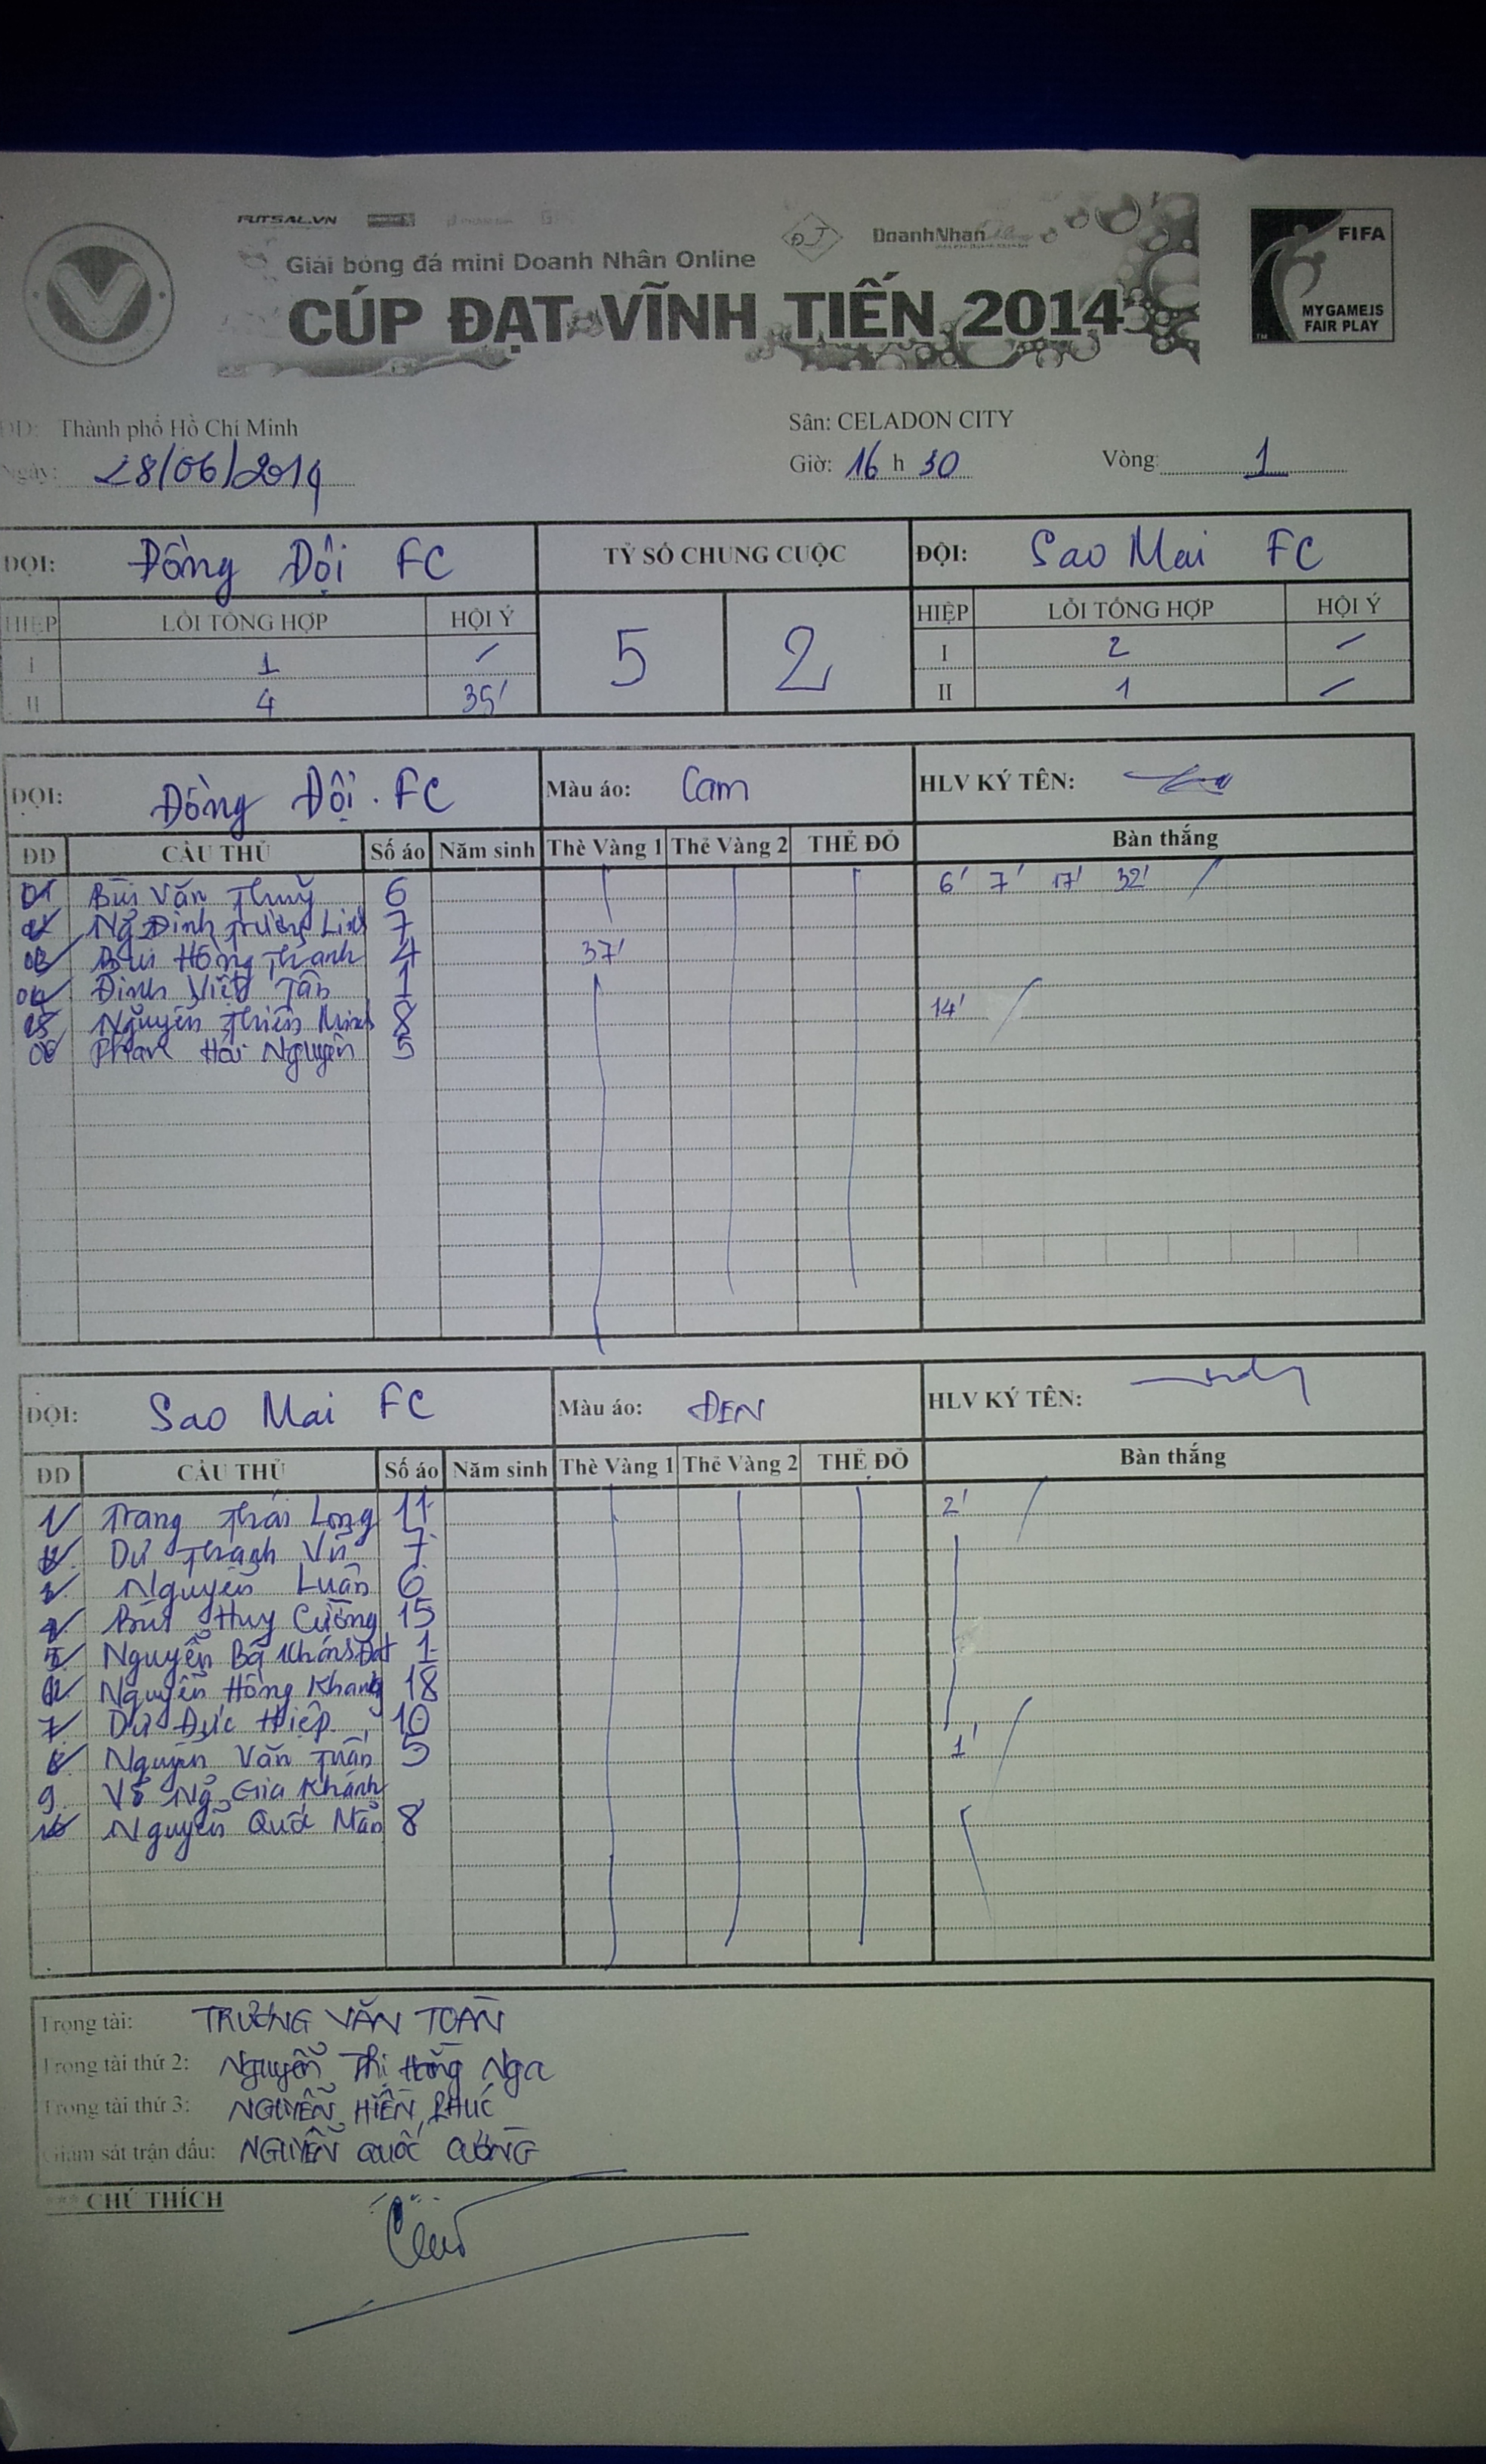 FUTSAL.VN
DoanhNhan
Giải bóng đá mini Doanh Nhân Online
CÚP ĐẠT VĨNH TIẾN 2014
FIFA
MY GAME IS
FAIR PLAY
ĐĐ: Thành phố Hồ Chí Minh Sân: CELADON CITY
Ngày: 28/06/2014 Giờ: 16 h 30 Vòng: 1
ĐỘI: Đồng Đội FC TỶ SỐ CHUNG CUỘC ĐỘI: Sao Mai FC
HIỆP LỖI TỔNG HỢP HỘI Ý 5 2 HIỆP LỖI TỔNG HỢP HỘI Ý
I 1 / I 2 /
II 4 35' II 1 /
ĐỘI: Đồng Đội . FC Màu áo: Cam HLV KÝ TÊN:
ĐD CẦU THỦ Số áo Năm sinh Thẻ Vàng 1 Thẻ Vàng 2 THẺ ĐỎ Bàn thắng
01 Bùi Văn Thuỷ 6 6' 7' 17' 32'
Ng Đình Trường Linh 7
03 Bùi Hồng Thanh 4 37'
04 Đinh Việt Tân 1
05 Nguyễn Thiên Minh 8 14'
06 Phan Hải Nguyên 5
ĐỘI: Sao Mai FC Màu áo: ĐEN HLV KÝ TÊN:
ĐD CẦU THỦ Số áo Năm sinh Thẻ Vàng 1 Thẻ Vàng 2 THẺ ĐỎ Bàn thắng
1 Trang Thái Long 11 2'
2 Dư Thanh Vũ 7
3 Nguyễn Luân 6
4 Bùi Huy Cường 15
5 Nguyễn Bá Khánh Đạt 1
6 Nguyễn Hồng Khang 18
7 Dư Đức Hiệp 10
8 Nguyễn Văn Tuấn 5 1'
9. Võ Ng Gia Khánh
10 Nguyễn Quốc Mẫn 8
Trọng tài: TRƯƠNG VĂN TOÀN
Trọng tài thứ 2: Nguyễn Thị Hằng Nga
Trọng tài thứ 3: NGUYỄN HIỀN PHÚC
Giám sát trận đấu: NGUYỄN QUỐC CƯỜNG
*** CHÚ THÍCH